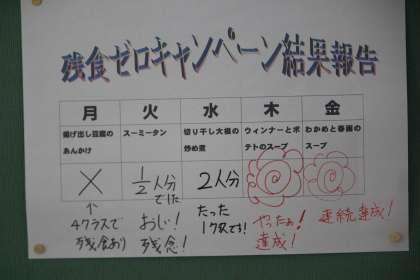 残食ゼロキャンペーン結果報告
月 火 水 木 金
揚げ出し豆腐の
あんかけ
スーミータン
切り干し大根の
炒め煮
ウィンナーとポ
テトのスープ
わかめと春雨の
スープ
×
1/2人分
でした
2人分
↑
4クラスで
残食あり
おしい!
残念!
たった
1クラスです!
やったぁ!
達成!
連続達成!